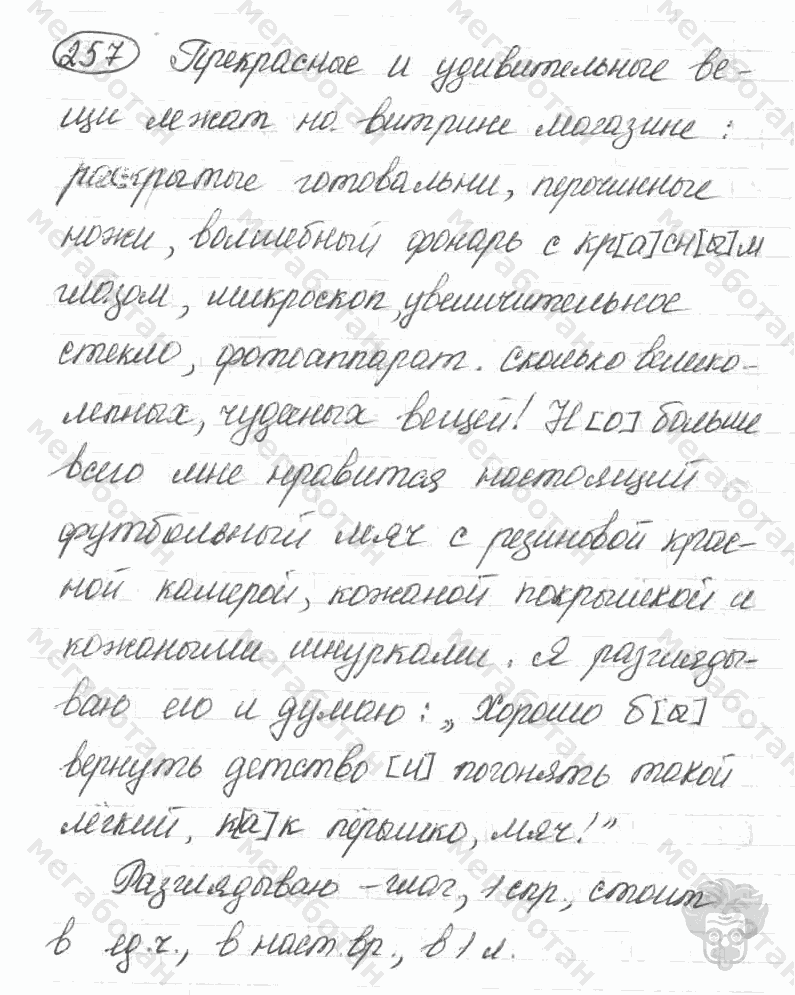 257 Прекрасные и удивительные ве-
щи лежат на витрине магазине :
раскрытые готовальни, перочинные
ножи, волшебный фонарь с кр[а]сн[ы]м
глазом, микроскоп, увеличительное
стекло, фотоаппарат. Сколько велико-
лепных, чудесных вещей! Н[о] больше
всего мне нравится настоящий
футбольный мяч с резиновой крас-
ной камерой, кожаной покрышкой и
кожаными шнурками. Я разгляды-
ваю его и думаю: „Хорошо б[ы]
вернуть детство [и] погонять такой
лёгкий, к[а]к пёрышко, мяч!"
Разглядываю – глаг, 1 спр., стоит
в ед.ч., в наст вр., в 1 л.
мегаботан